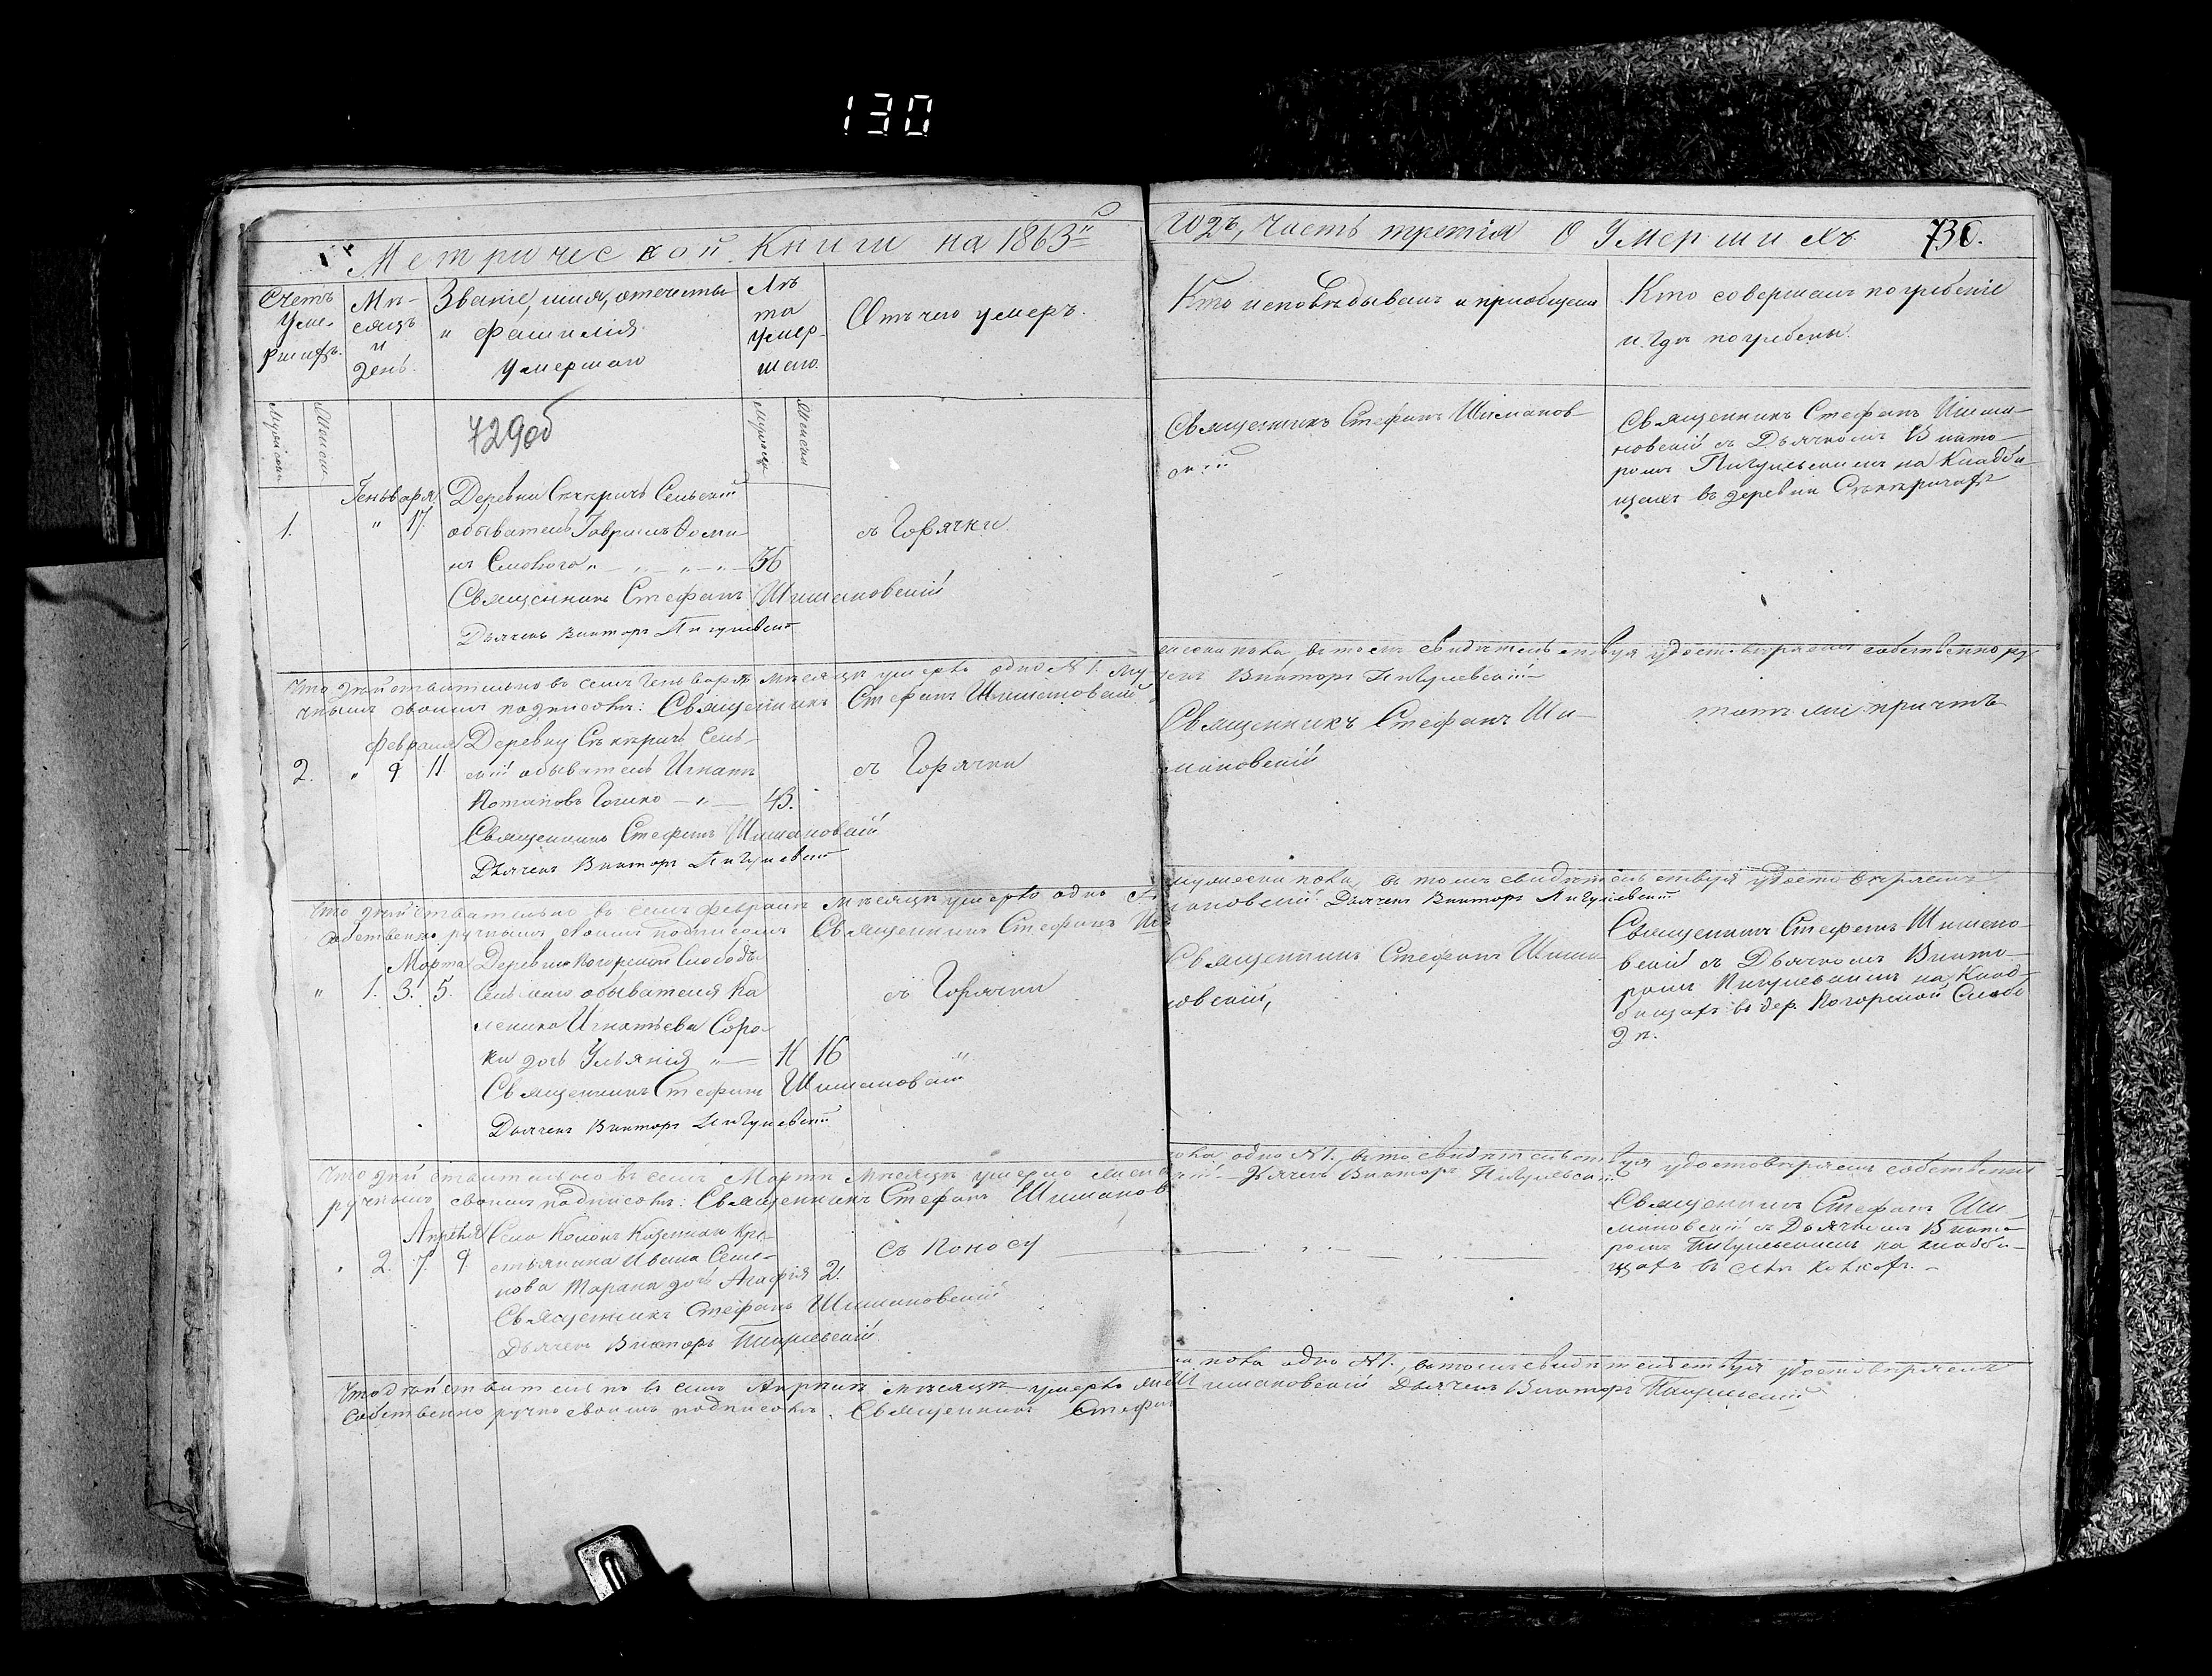 130
Метрической Книги на 1863й
годъ, Часть третія О Умершихъ. 730.
Счетъ
Уме-
ршихъ.
Мѣ-
сяцъ
и
день.
Званіе, имя, отечество
и фамилія
умершаго
Лѣ
та
умер-
шаго.
Отъ чего умеръ.
Кто исповѣдывалъ и пріобщалъ
Кто совершалъ погребеніе
и гдѣ погребены.
729об
Генваря Деревни Сѣкиричъ Сельскій
1. " 17. обыватель Гавріилъ Ѳоми
36 съ Горячки
Священникъ Стефанъ Шимановскій
Дьячекъ Викторъ Пигулевскій
Священникъ Стефанъ Шиманов
скій
Священникъ Стефанъ Шима-
новскій съ Дьячкомъ Викто-
ромъ Пигулевскимъ на Кладби
щахъ въ деревни
Что дѣйствительно въ семъ Генварѣ мѣсяцѣ умерло одно №1. му
жеска пола, въ томъ свидѣтельствуя удостовѣряемъ собственнору
чнымъ своимъ подписомъ: Священникъ Стефанъ Шимановскій
Дьячекъ Викторъ Пигулевскій
Февраля Деревни Сѣкиричъ Сель-
2. " 9 11. скій обыватель Игнатъ
Потаповъ 43. съ Горячки
Священникъ Стефанъ Шимановскій
Дьячекъ Викторъ Пигулевскій
Священникъ Стефанъ Ши-
мановскій
тотъ же причтъ
Что дѣйствительно въ семъ Февралѣ мѣсяцѣ умерло одно
мужеска пола, въ томъ свидѣтельствуя удостовѣряемъ
собственноручнымъ своимъ подписомъ Священникъ Стефанъ Ши
мановскій Дьячекъ Викторъ Пигулевскій
Марта Деревни Погорской Слободы
" 1. 3. 5. Сельскаго обывателя Ка
леника Игнатьева Соро-
ки дочь Ульянія " — 16 съ Горячки
Священникъ Стефанъ Шимановскій
Дьячекъ Викторъ Пигулевскій
Священникъ Стефанъ Шима
новскій,
Священникъ Стефанъ Шимано-
вскій съ Дьячкомъ Викто-
ромъ Пигулевскимъ на Клад-
бищахъ въ дер. Погорской Слобо
дѣ.
Что дѣйствительно въ семъ Мартѣ Мѣсяцѣ умерло женска
пола одно №1. въ томъ свидѣтельствуя удостовѣряемъ собственно
ручнымъ своимъ подписомъ: Священникъ Стефанъ Шиманов
скій Дьячекъ Викторъ Пигулевскій
Апрѣля Села Казеннаго Кре-
" 2. 7. 9 стьянина Ивана Семе-
нова Тарана дочь Агафія 2. съ Поносу
Священникъ Стефанъ Шимановскій
Дьячекъ Викторъ Пигулевскій
Священникъ Стефанъ Ши
мановскій съ Дьячкомъ Викто-
ромъ Пигулевскимъ на кладби-
щахъ въ селѣ
Что дѣйствительно въ семъ Апрѣлѣ мѣсяцѣ умерло жен
ска пола одно №1., въ томъ свидѣтельствуя удостовѣряемъ
собственноручно своимъ подписомъ. Священникъ Стефанъ
Шимановскій Дьячекъ Викторъ Пигулевскій